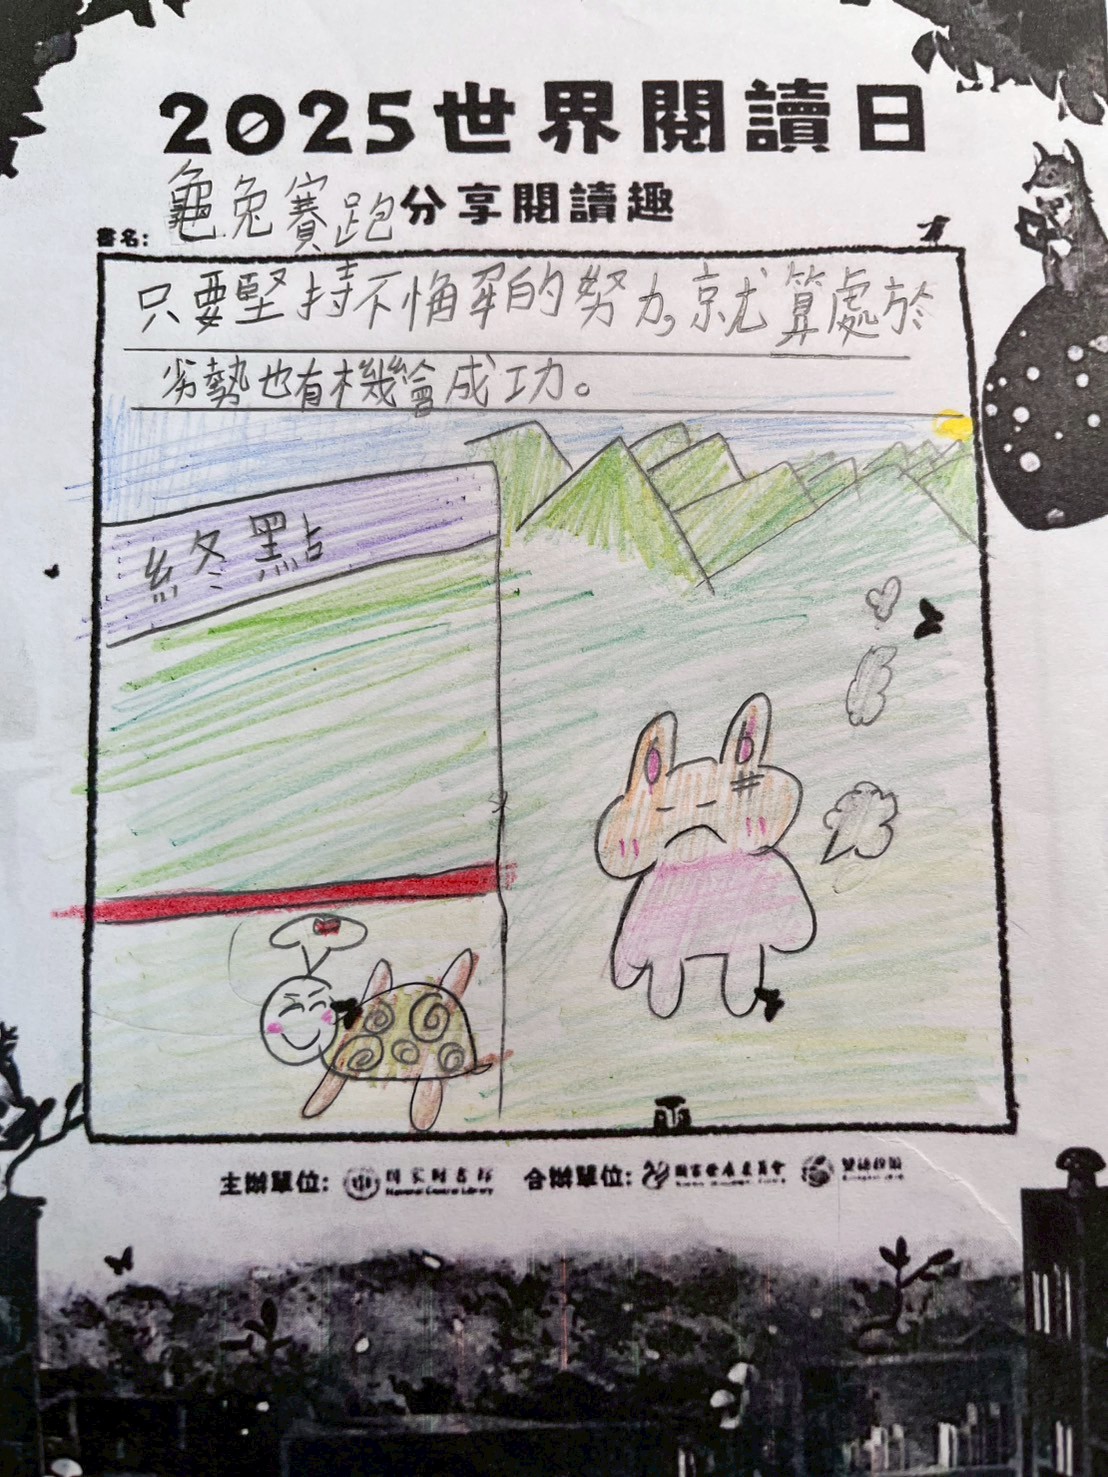 2025世界閱讀日
龜兔賽跑分享閱讀趣
書名:
只要堅持不悔犀的努力,就算處於
劣勢也有機會成功。
終點
主辦單位: 國家圖書館 合辦單位:
National Central Library